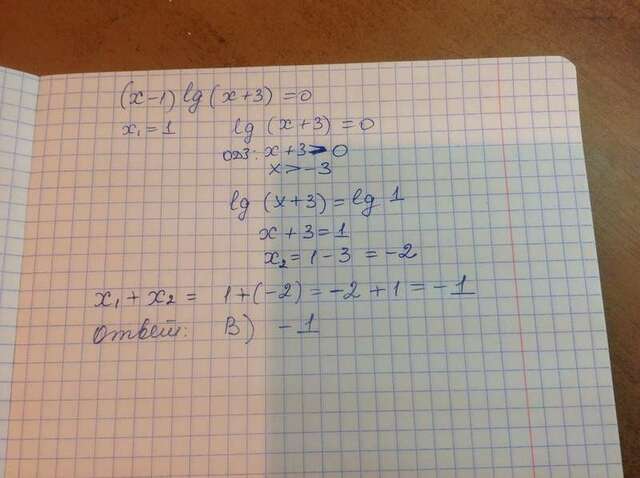 (x-1) lg (x+3) = 0
x₁ = 1 lg (x+3) = 0
ОДЗ: x+3 > 0
x > -3
lg (x+3) = lg 1
x+3 = 1
x₂ = 1-3 = -2
x₁ + x₂ = 1+(-2) = -2+1 = -1
Ответ: В) -1